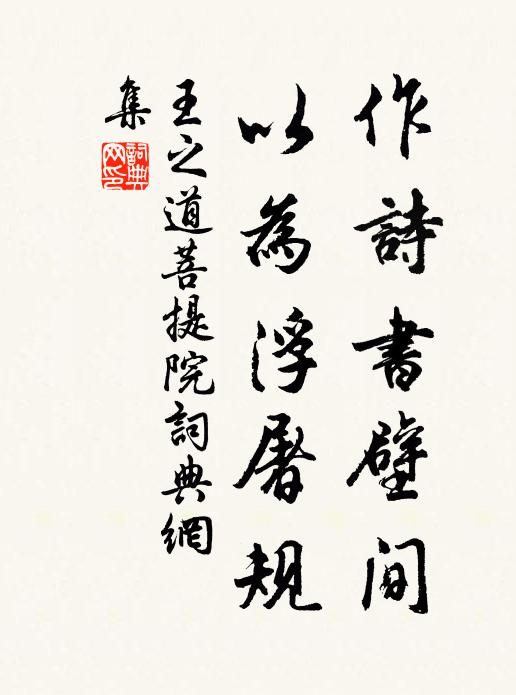 作詩書壁間
以為浮屠規
王之道菩提院詞典網
集
詞典
网印